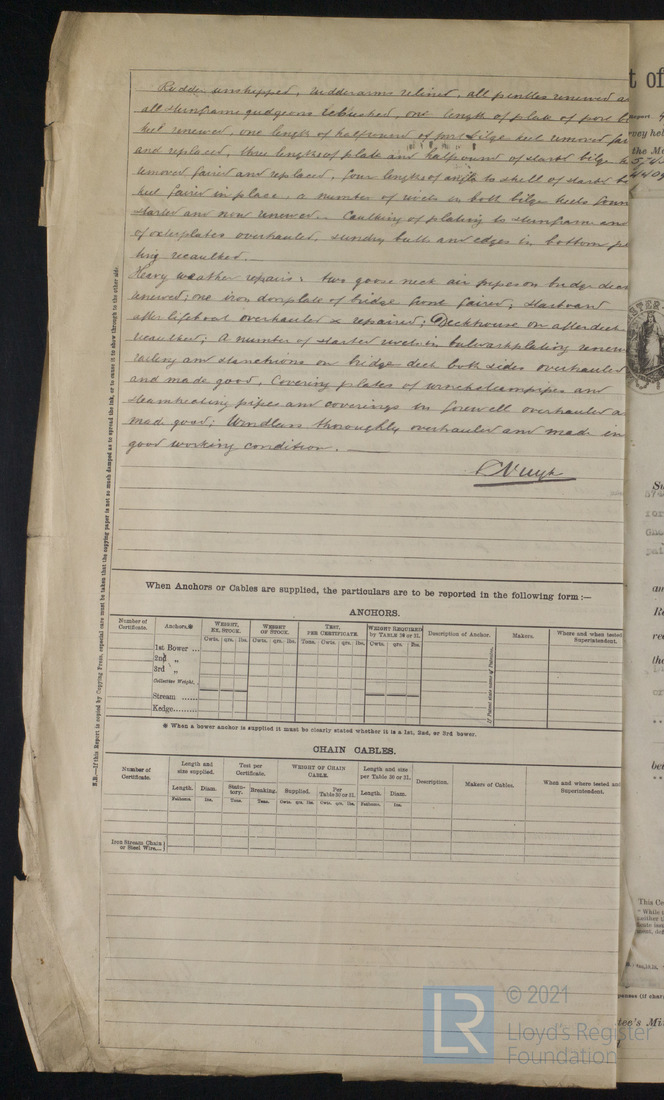 Rudder unshipped, rudderarms relined, all pintles renewed a
all sternframe gudgeons rebushed, one length of plate of port b
keel renewed, one length of halfround of port bilge keel removed fai
and replaced, three lengths of plate and halfround of starb bilge k
removed faired and replaced, four lengths of angle to shell of starb b
keel faired in place, a number of rivets in both bilge keels foun
started and now renewed. Caulking of plating to sternframe and
of oxterplates overhauled, sundry butts and edges in bottom pl
ting recaulked.
Heavy weather repairs: two goose neck air pipes on bridge deck
renewed; one iron doorplate of bridge front faired; starboard
after lifeboat overhauled & repaired; Deckhouse on after deck
recaulked; A number of started rivets in bulwarkplating renew
railing and stanchions on bridge deck both sides overhauled
and made good. Covering plates of winchsteampipes and
steamheating pipes and coverings in forewell overhauled a
made good; Windlass thoroughly overhauled and made in
good working condition.
When Anchors or Cables are supplied, the particulars are to be reported in the following form :—
ANCHORS.
Number of Certificate.
Anchors.*
WEIGHT, EX. STOCK.
WEIGHT OF STOCK.
TEST, PER CERTIFICATE.
WEIGHT REQUIRED by TABLE 30 or 31.
Description of Anchor.
Makers.
Where and when tested
Superintendent.
Cwts. qrs. lbs. Cwts. qrs. lbs. Tons. Cwts. qrs. lbs. Cwts. qrs. lbs.
1st Bower ...
2nd „
3rd „
Collective Weight.
Stream ......
Kedge.........
* When a bower anchor is supplied it must be clearly stated whether it is a 1st, 2nd, or 3rd bower.
CHAIN CABLES.
Number of Certificate.
Length and size supplied.
Test per Certificate.
WEIGHT OF CHAIN CABLE.
Length and size per Table 30 or 31.
Description.
Makers of Cables.
When and where tested and
Superintendent.
Length. Diam. Statutory. Breaking. Supplied. Per Table 30 or 31. Length. Diam.
Fathoms. Ins. Tons. Tons. Cwts. qrs. lbs. Cwts. qrs. lbs. Fathoms. Ins.
Iron Stream Chain or Steel Wire...
N.B.—If this Report is copied by Copying Press, especial care must be taken that the copying paper is not so much damped as to spread the ink, or to cause it to show through to the other side.
t of
the M
This Ce
tee's Mi
LR
© 2021
Lloyd's Register
Foundation